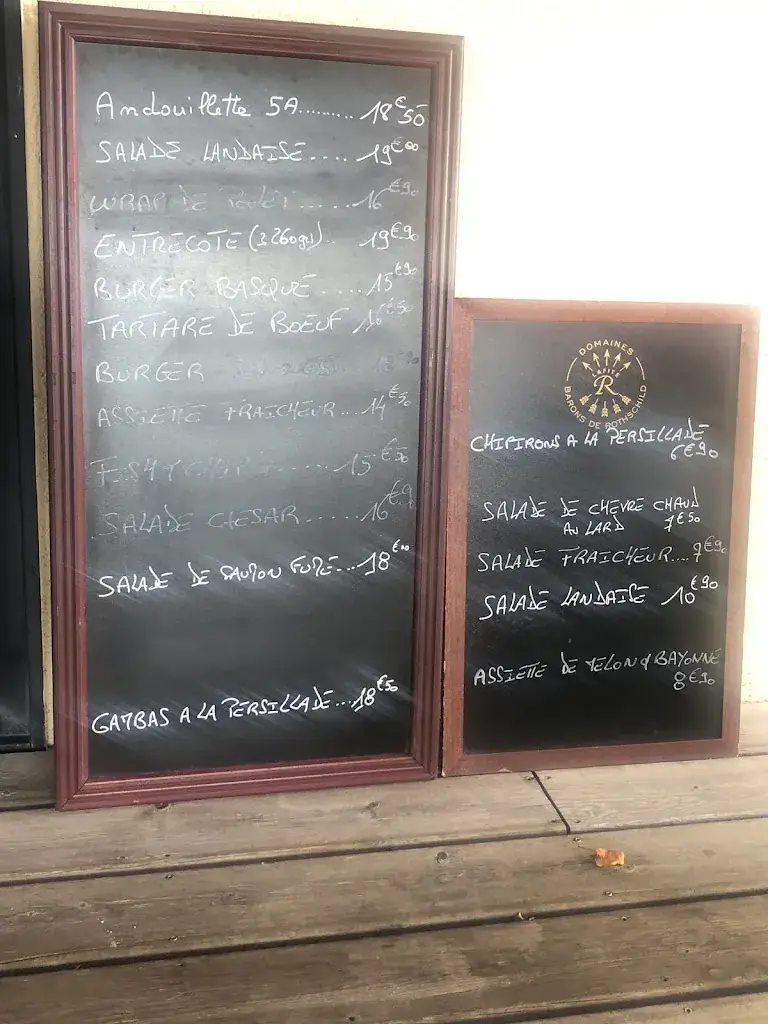 Andouillette 5A.......... 18€50
SALADE LANDAISE..... 19€00
WRAP DE POULET ........16€90
ENTRECOTE (± 260gr).. 19€90
BURGER BASQUE.....15€90
TARTARE DE BOEUF 16€50
BURGER
ASSIETTE FRAICHEUR...14€50
FISH ......15€50
SALADE CESAR......16€90
SALADE DE SAUMON FUMÉ...18€00
GAMBAS A LA PERSILLADE...18€50
DOMAINES
LAFITE
R
BARONS DE ROTHSCHILD
CHIPIRONS A LA PERSILLADE
6€90
SALADE DE CHEVRE CHAUD
AU LARD 7€50
SALADE FRAICHEUR...7€90
SALADE LANDAISE 10€90
ASSIETTE DE MELON & BAYONNE
8€90